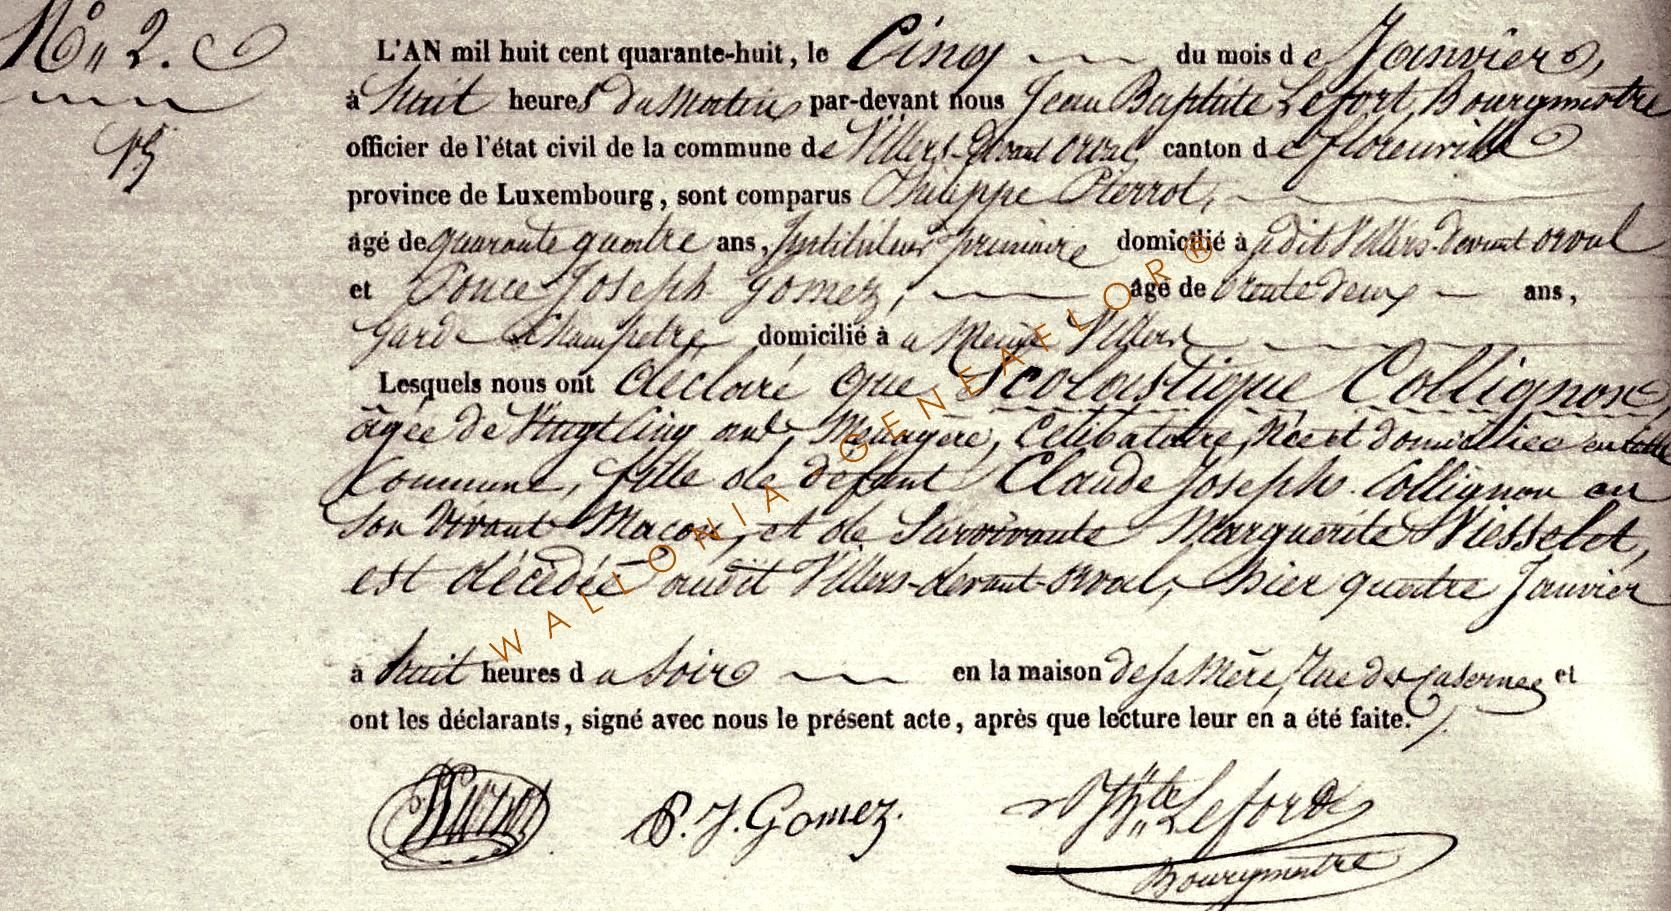 N° 2.
L'AN mil huit cent quarante-huit, le Cinq du mois de Janvier,
à huit heures du Matin, par-devant nous Jean Baptiste Lefort, Bourgmestre
officier de l'état civil de la commune de Villers-devant orval, canton de florenville
province de Luxembourg, sont comparus Philippe Pierrot,
âgé de quarante quatre ans, Instituteur primaire domicilié à audit Villers-devant orval
et Ponce Joseph Gomez, âgé de trente deux ans,
Garde Champetre, domicilié à au Meme Villers
Lesquels nous ont déclaré que Scolastique Collignon,
âgée de Vingt Cinq ans, Menagere, Celibataire, Née et domiciliee en cette
Commune, fille de defunt Claude Joseph Collignon en
son vivant Macon, et de Survivante Marguerite Wiesselet,
est décédée audit Villers-devant-orval, hier quatre Janvier
à huit heures du soir en la maison de sa Mère, Rue des Casernes et
ont les déclarants, signé avec nous le présent acte, après que lecture leur en a été faite.
Pierrot P. J. Gomez. J Bte Lefort
Bourgmestre
WALLONIA GENEAFLOR®